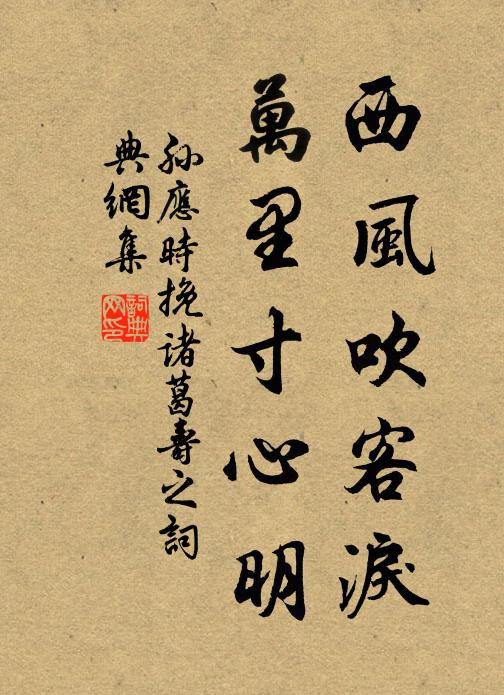 西風吹客淚
萬里寸心明
孫應時挽諸葛壽之詞
典網集
詞典
网印